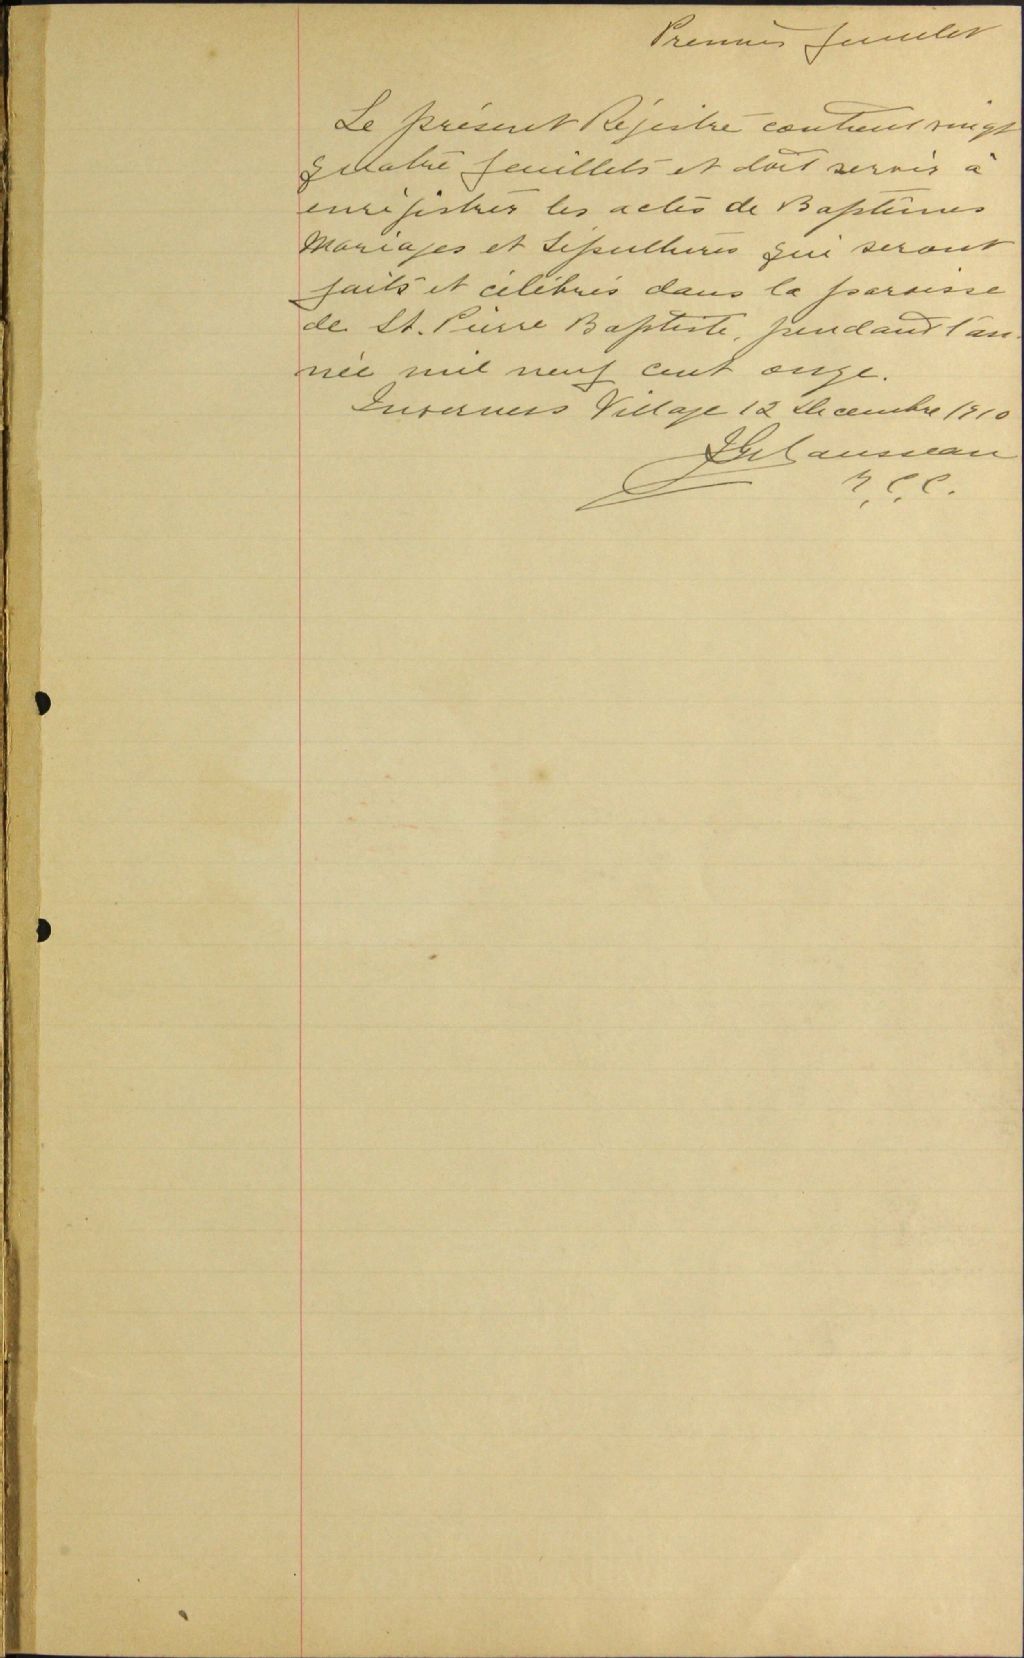 Premier feuillet
Le présent Régistre contient vingt
quatre feuillets et doit servir à
enrégistrer les actes de Baptêmes
Mariages et Sépultures qui seront
faits et célébrés dans la paroisse
de St. Pierre Baptiste, pendant l'an-
née mil neuf cent onze.
Inverness Village 12 Décembre 1910
Rousseau
C. C.